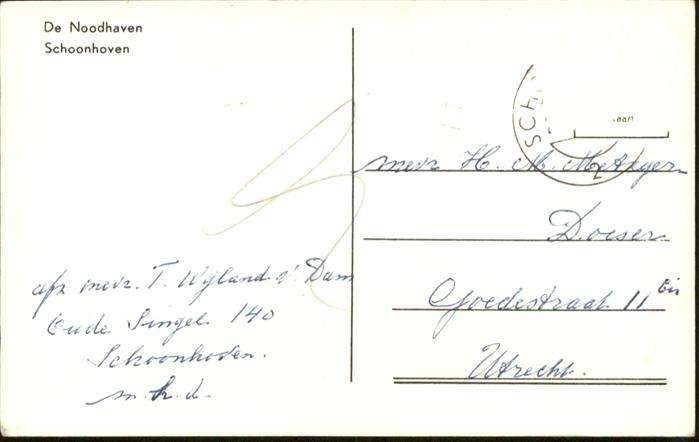 De Noodhaven
Schoonhoven
SCH
mevr H. M. Metzger
Doeser
Goedestraat 11 bis
Utrecht.
afz mevr. T. Wijland v. Dam
Oude Singel 140
Schoonhoven.
m. h. d.